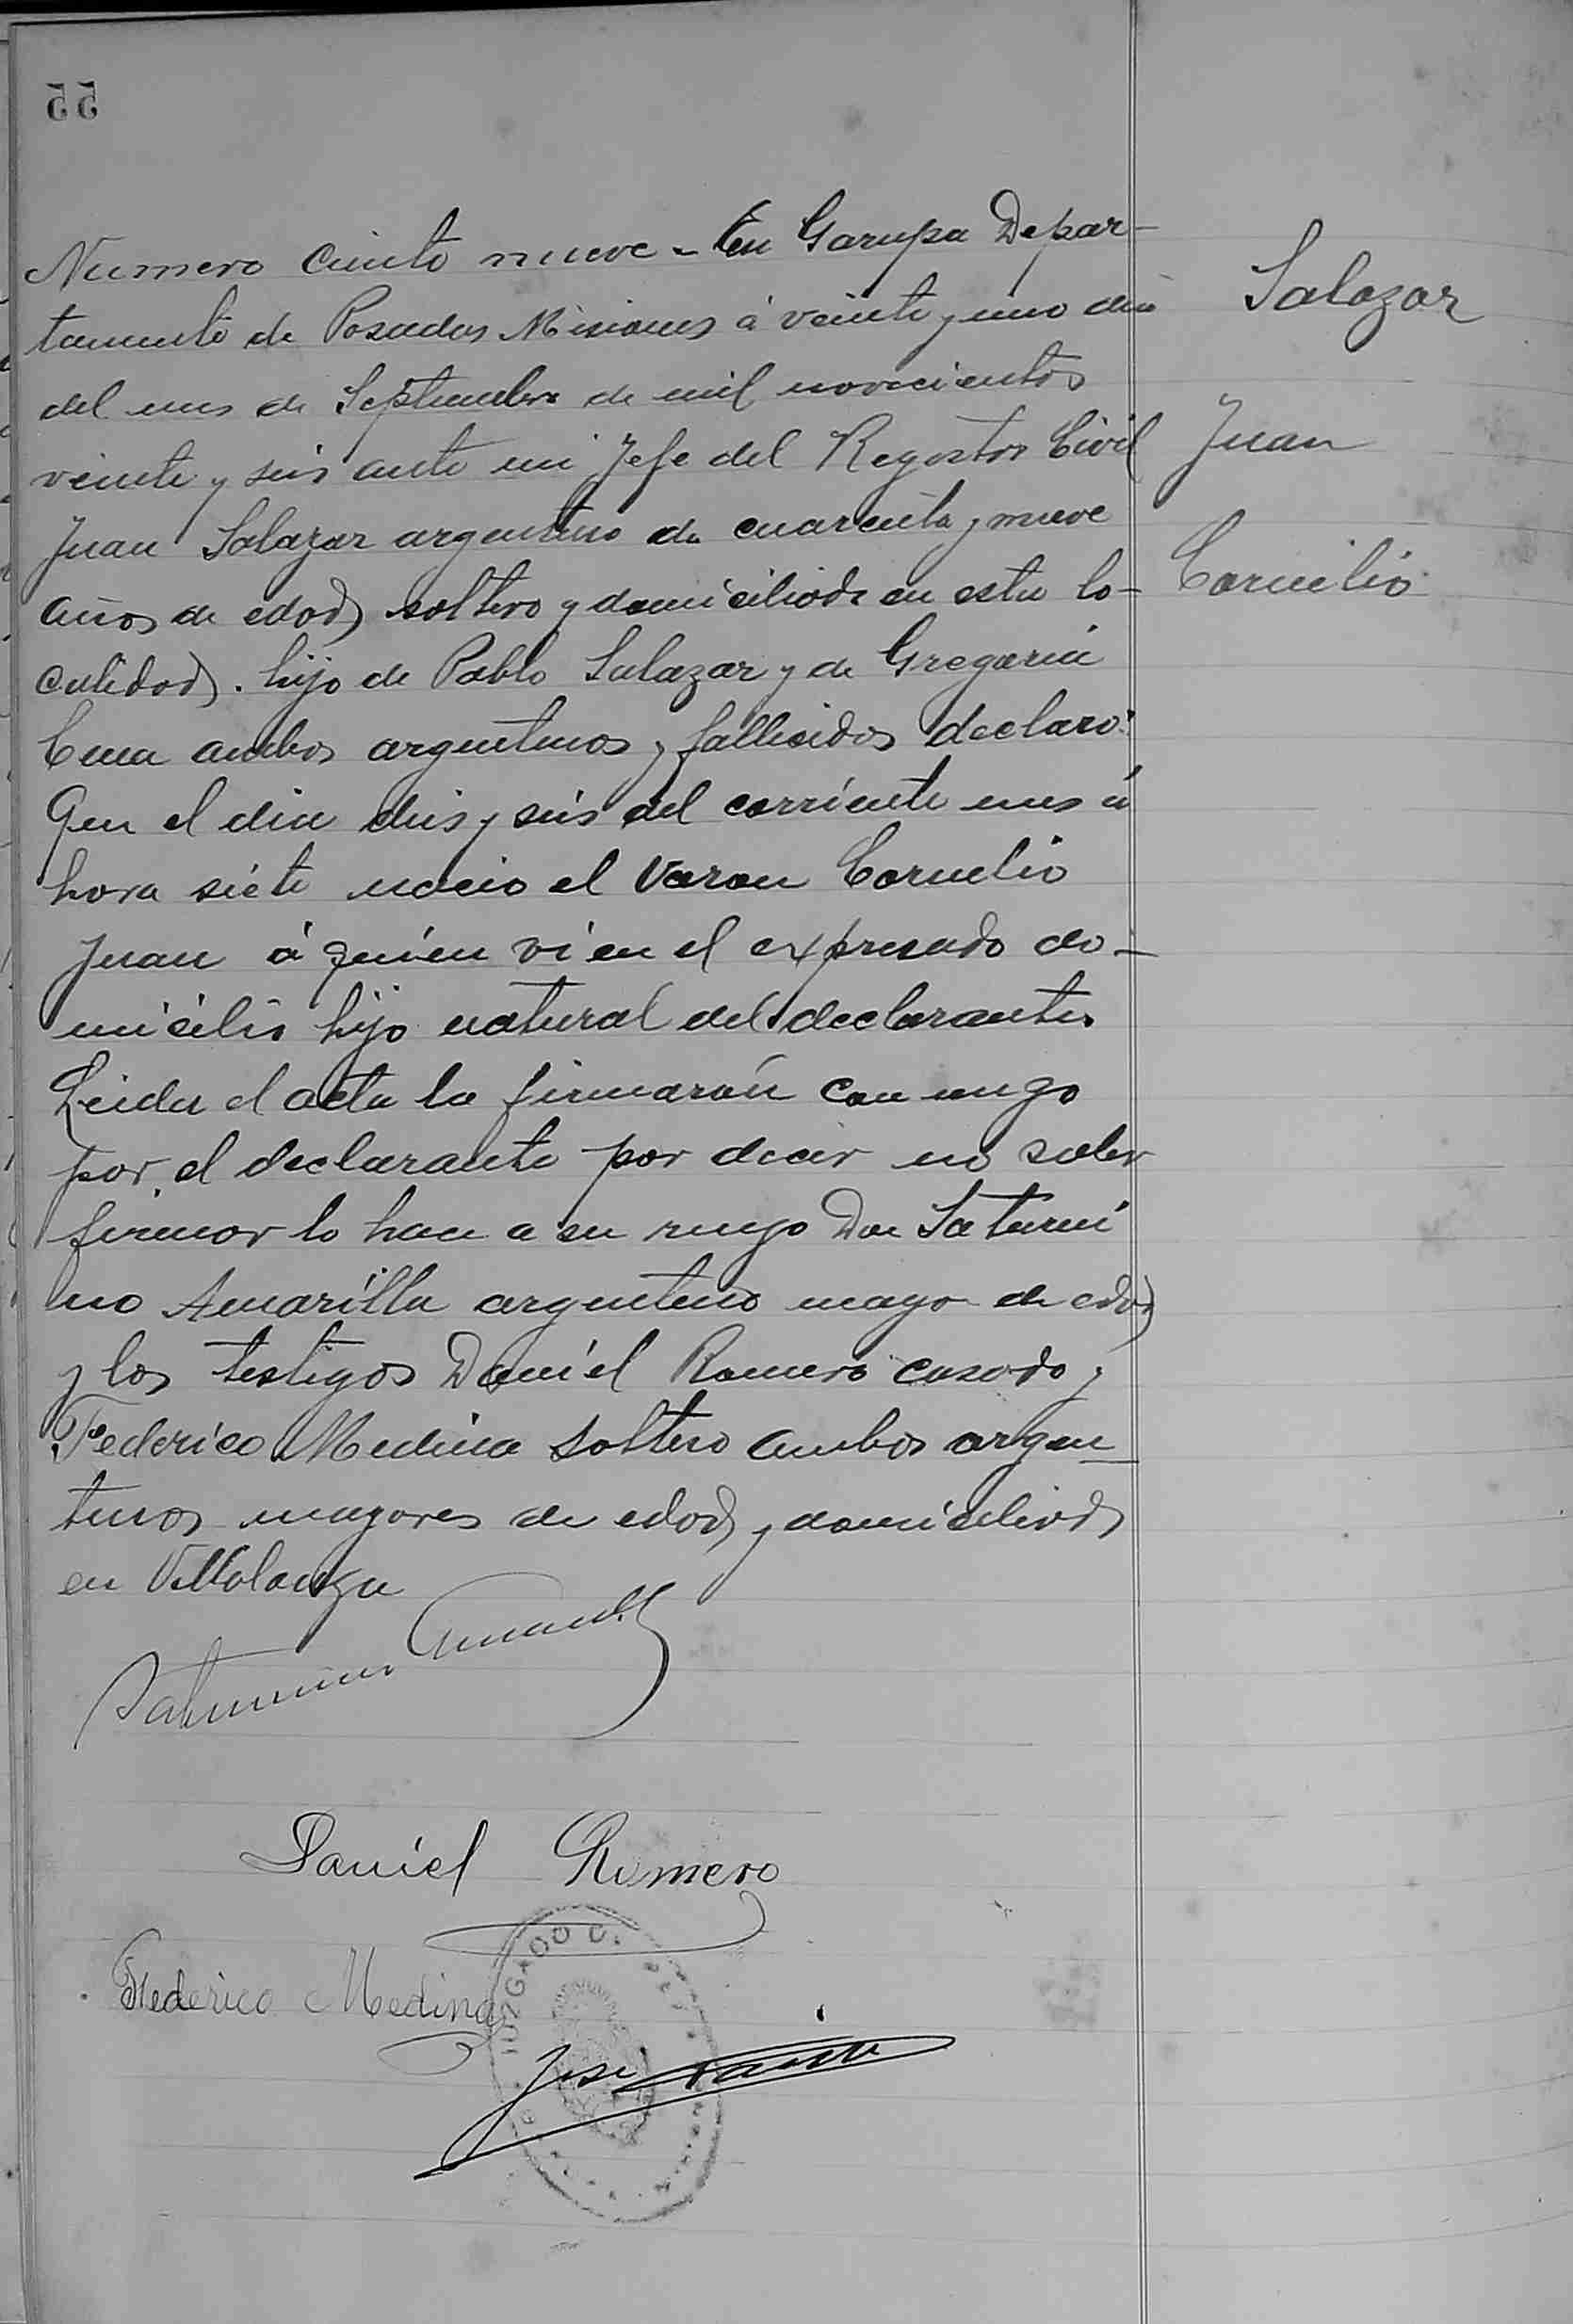 55
Numero ciento nueve - En Garupa Depar-
tamento de Posadas Misiones á veinte y uno dia
del mes de Septiembre de mil novecientos
veinte y seis ante mi Jefe del Registro Civil
Juan Salazar argentino de cuarenta y nueve
años de edad soltero y domiciliado en esta lo-
calidad. hijo de Pablo Salazar y de Gregoria
ambos argentinos y fallesidos declaró:
Que el dia dies y seis del corriente mes á
hora siete nacio el varon Cornelio
Juan á quien vi en el expresado do-
micilio hijo natural del declarante.
Leida el acta la firmarón con migo
por el declarante por decir no saber
firmar lo hace a su ruego Don Saturni
no Amarilla argentino mayor de edad
y los testigos Daniel Romero casado y
Federico Medina soltero ambos argen
tinos mayores de edad y domiciliados
en Villalonga
Salazar
Juan
Cornelio
Saturnino Amarilla
Daniel Romero
Federico Medina
José
JUZGADO D